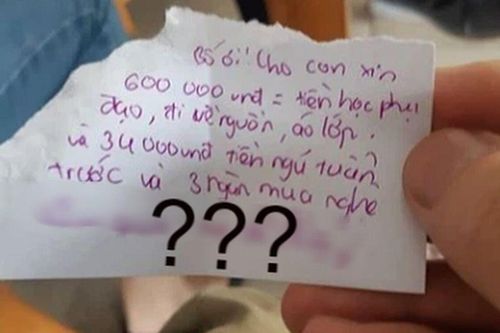 Bố ơi!! Cho con xin
600 000 vnđ = tiền học phụ
đạo, đi về nguồn, áo lớp.
và 34 000 vnđ tiền ngủ tuần
trước và 3 ngàn mua nghệ
???